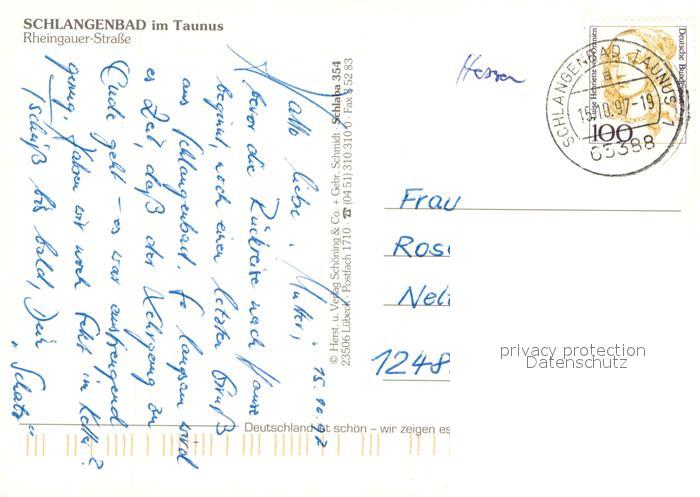 SCHLANGENBAD im Taunus
Rheingauer-Straße
Hallo liebe Mutter,
15.10.97
bevor die Rückreise nach Hause
beginnt, noch einen letzten Gruß
aus Schlangenbad. So langsam wird
es Zeit, daß der Lehrgang zu
Ende geht – es war anstrengend
genug. Haben wir noch Sekt im Keller?
Tschüß bis bald, Dein
"Schatz"
© Herst. u. Verlag Schöning & Co. + Gebr. Schmidt · Schlana 354
23506 Lübeck · Postfach 1710 · ☎ (04 51) 310 310 · Fax 3 52 83
Hessen
Deutsche Bundespost
SCHLANGENBAD, TAUNUS 1
a
15.10.97-19
65388
100
Frau
Ros
Nel
1248
privacy protection
Datenschutz
Deutschland ist schön – wir zeigen es